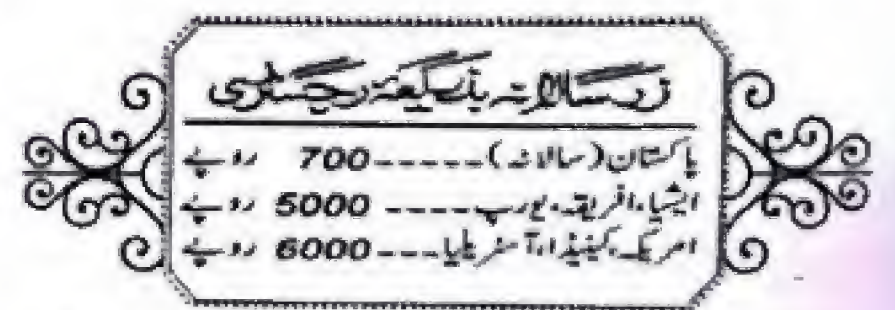 زرِ سالانہ بذریعہ رجسٹری
پاکستان (سالانہ)-----700 روپے
ایشیا، افریقہ، یورپ----5000 روپے
امریکہ، کینیڈا، آسٹریلیا---6000 روپے